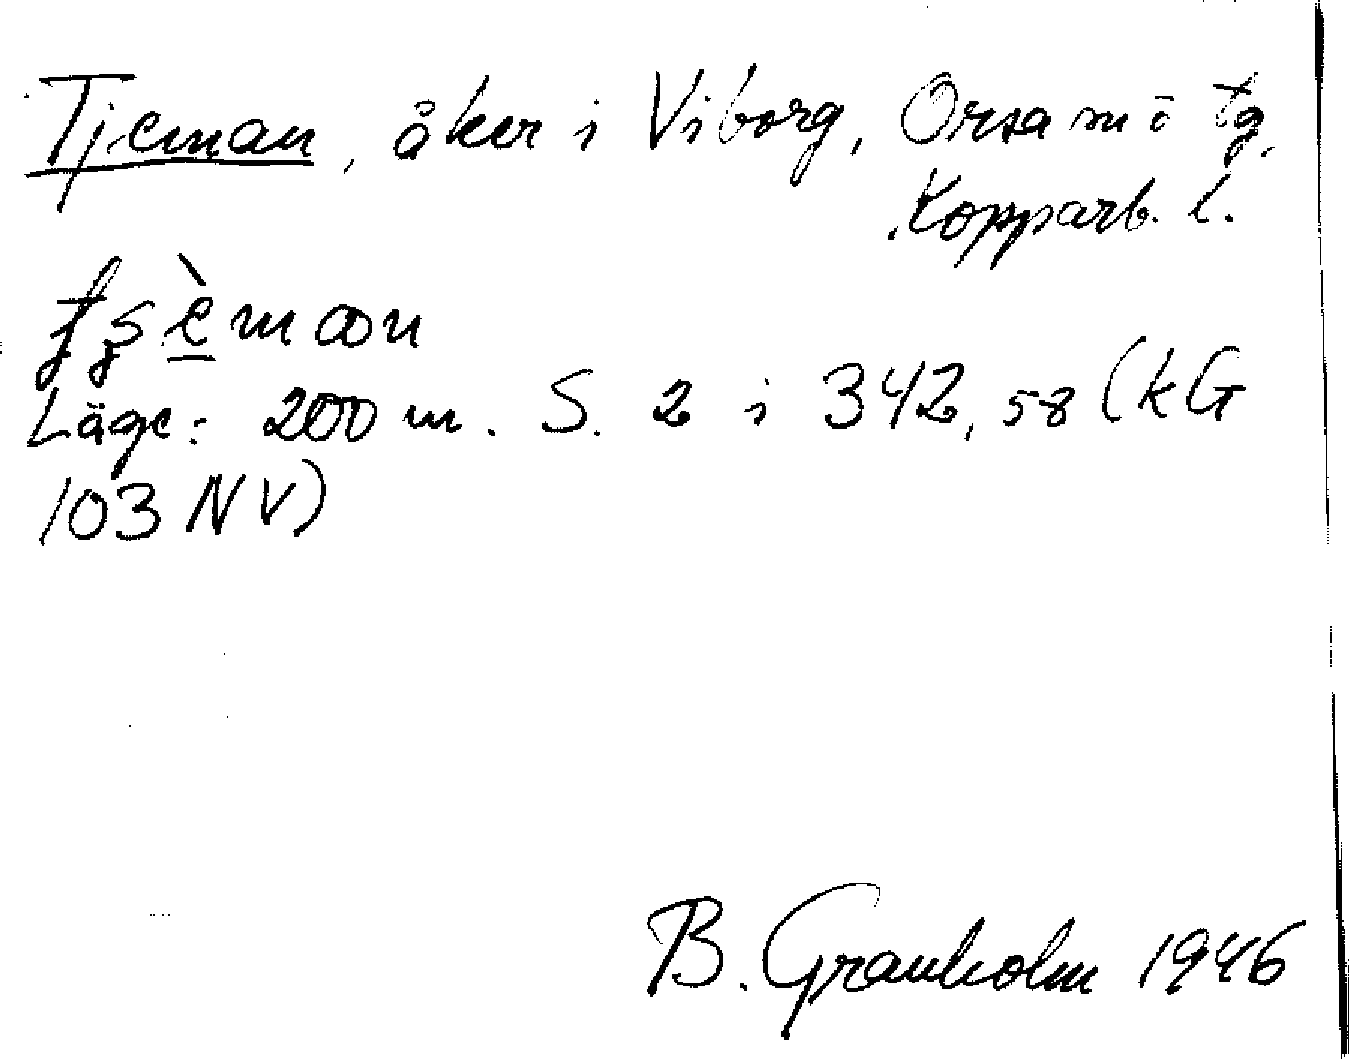 Tjeman, åker i Viborg, Orsa sn ö tg,
Kopparb. l.
Läge: 200 m. S. 2 i 342, 58 (kG
103 NV)
B. Granholm 1946